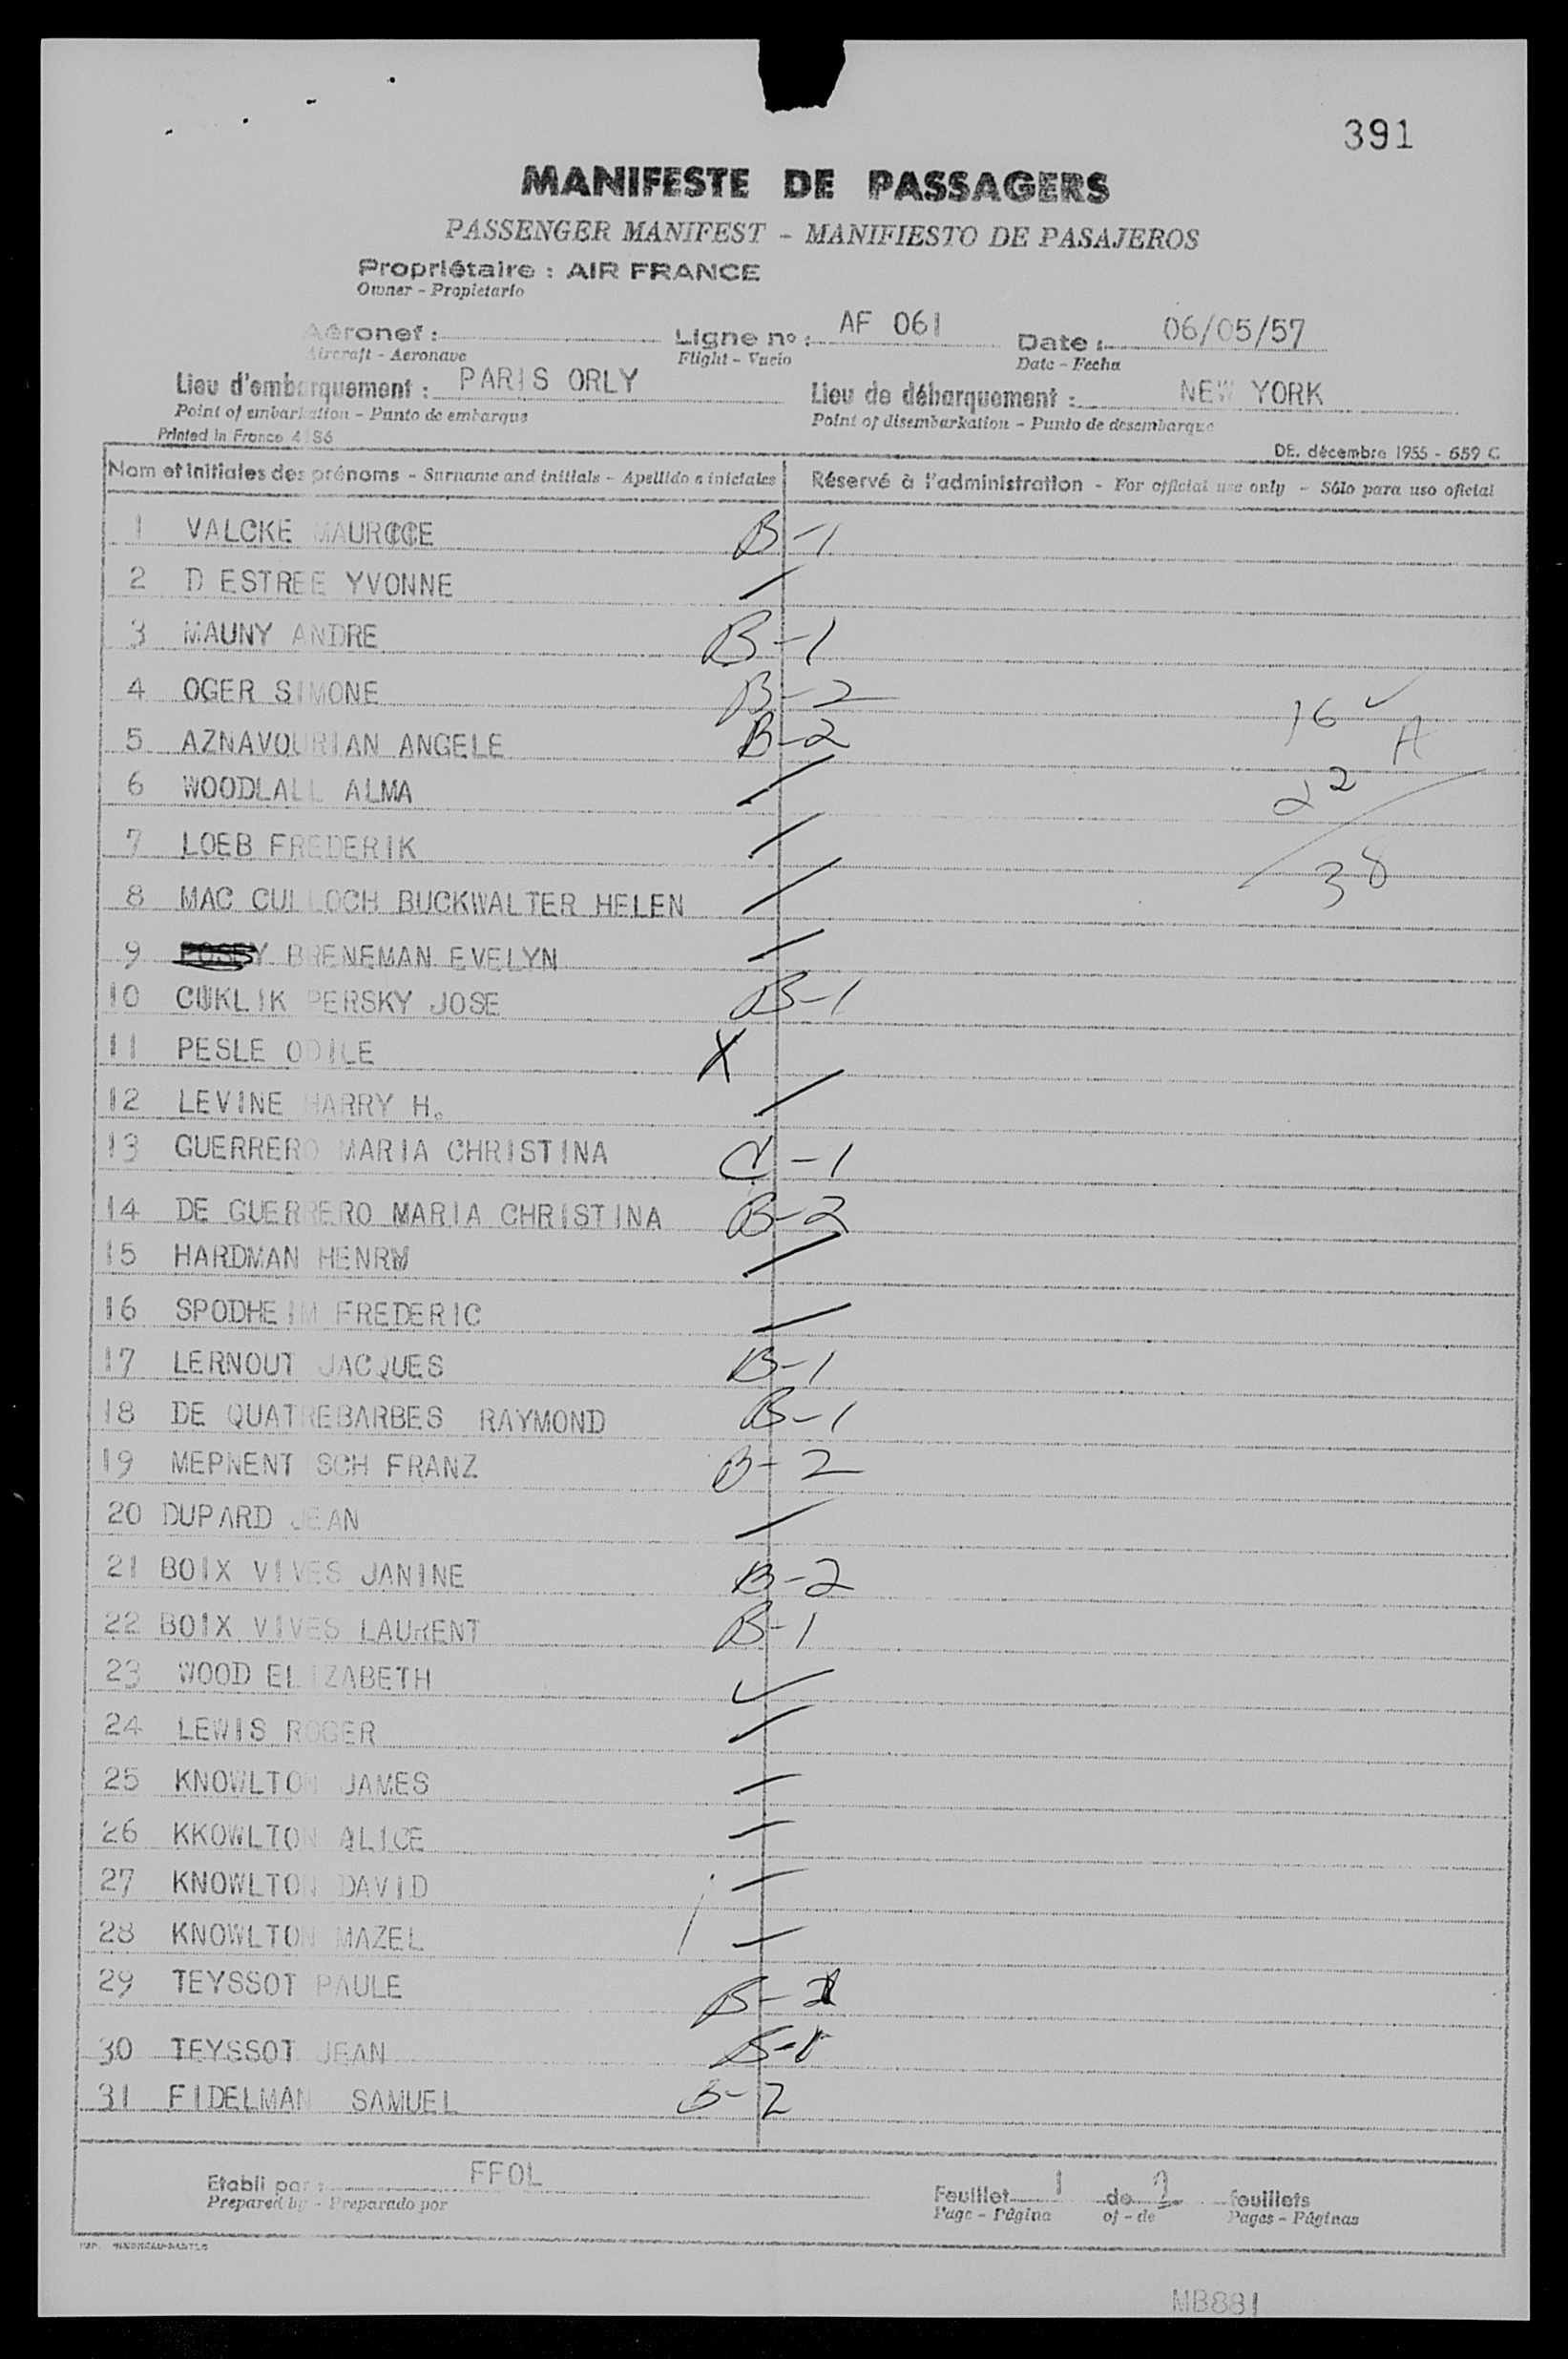 391
MANIFESTE DE PASSAGERS
PASSENGER MANIFEST - MANIFIESTO DE PASAJEROS
Propriétaire : AIR FRANCE
Owner - Propietario
Aéronef : Ligne no : AF 061 Date : 06/05/57
Aircraft - Aeronave Flight - Vuelo Date - Fecha
Lieu d'embarquement : PARIS ORLY Lieu de débarquement : NEW YORK
Point of embarkation - Punto de embarque Point of disembarkation - Punto de desembarque
Printed in France DE. décembre 1955 - 659 C
Nom et initiales des prénoms - Surname and initials - Apellido e iniciales Réservé à l'administration - For official use only - Sólo para uso oficial
1 VALCKE B-1
2 D ESTREE YVONNE
3 MAUNY ANDRE B-1
4 OGER SIMONE B-2 16
5 AZNAVOURIAN ANGELE B-2 A
6 WOODLALL ALMA 22
7 LOEB FREDERIK
8 MAC CULLOCH BUCKWALTER HELEN 38
9 POSEY BRENEMAN EVELYN
10 CUKLIK PERSKY JOSE B-1
11 PESLE ODILE X
12 LEVINE HARRY H.
13 GUERRERO MARIA CHRISTINA C-1
14 DE GUERRERO MARIA CHRISTINA B-2
15 HARDMAN HENRY
16 SPODHEIM FREDERIC
17 LERNOUT JACQUES B-1
18 DE QUATREBARBES RAYMOND B-1
19 MEPNENT SCH FRANZ B-2
20 DUPARD JEAN
21 BOIX VIVES JANINE B-2
22 BOIX VIVES LAURENT B-1
23 WOOD ELIZABETH
24 LEWIS ROGER
25 KNOWLTON JAMES
26 KKOWLTON ALICE
27 KNOWLTON DAVID
28 KNOWLTON MAZEL
29 TEYSSOT PAULE
30 TEYSSOT JEAN
31 FIDELMAN SAMUEL B-2
Etabli par : FFOL
Prepared by - Preparado por
Feuillet 1 de 2 feuillets
Page - Página of - de Pages - Páginas
MB881